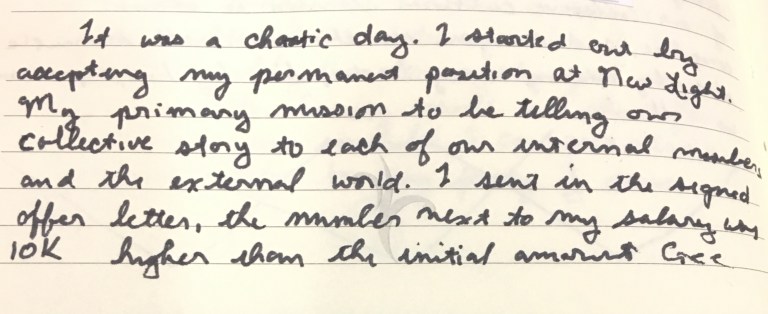 It was a chaotic day. I started out by
accepting my permanent position at New Light.
My primary mission to be telling our
collective story to each of our internal members
and the external world. I sent in the signed
offer letter, the number next to my salary was
10K higher than the initial amount